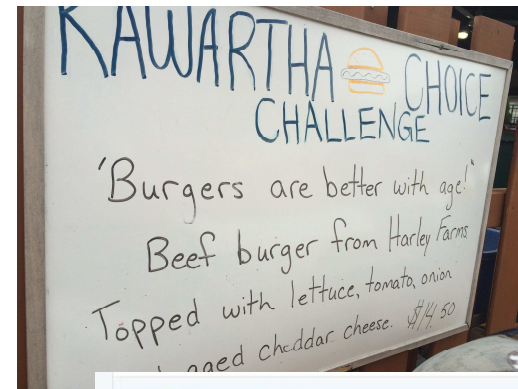 KAWARTHA CHOICE
CHALLENGE
'Burgers are better with age!"
Beef burger from Harley Farms
Topped with lettuce, tomato, onion
aged cheddar cheese. $14.50